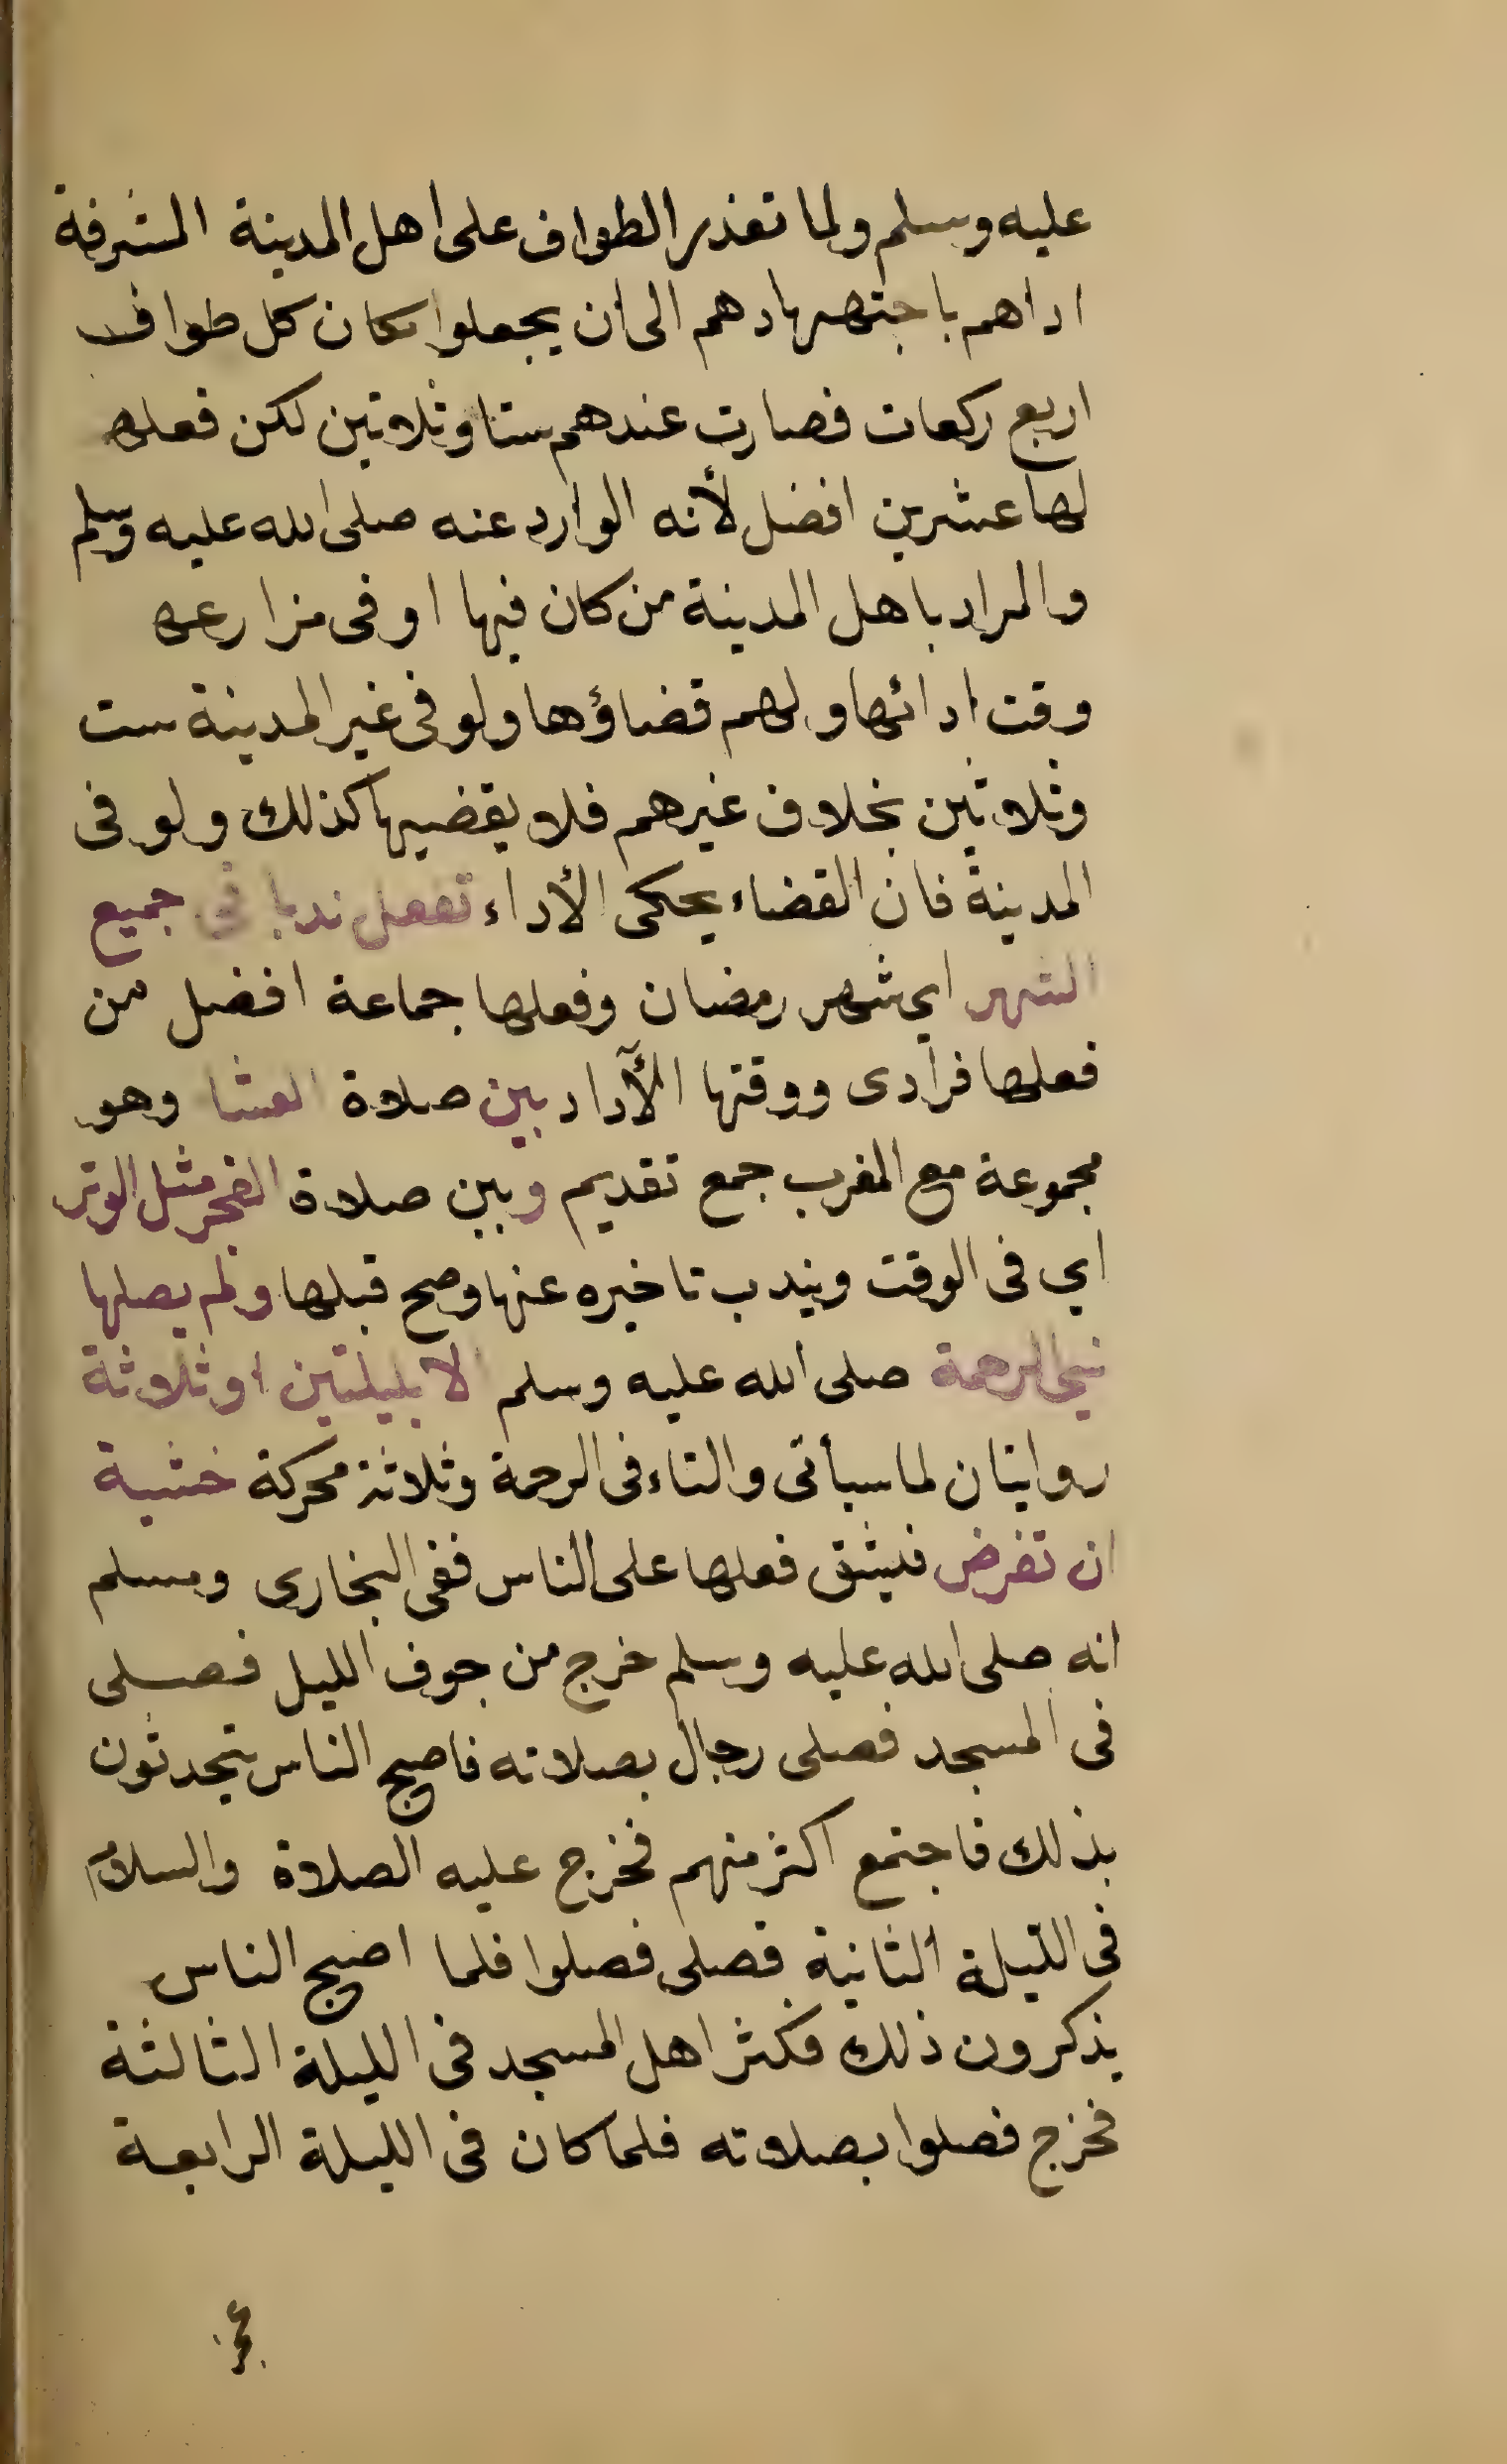 عليه وسلم ولما تعذر الطواف على اهل المدينة المشرفة
اداهم باجتهادهم الى ان يجعلوا مكان كل طواف
اربع ركعات فصارت عندهم ستا وثلاثين لكن فعلهم
لها عشرين افضل لأنه الوارد عنه صلى الله عليه وسلم
والمراد باهل المدينة من كان فيها او فى مزارعها
وقت ادائها ولهم قضاؤها ولو فى غير المدينة ست
وثلاثين بخلاف غيرهم فلا يقضيها كذلك ولو فى
المدينة فان القضاء يحكى الأداء تفعل ندبا فى جميع
الشهر اي شهر رمضان وفعلها جماعة افضل من
فعلها فرادى ووقتها الأداء بين صلاة العشا وهو
مجموعة مع المغرب جمع تقديم وبين صلاة الفجر مثل الوتر
اي فى الوقت ويندب تاخيره عنها وصح قبلها ولم يصلها
نبي الرحمة صلى الله عليه وسلم الا بليلتين او ثلاثة
روايتان لما سيأتى والتاء فى الرحمة وثلاثة محركة خشية
ان تفرض فيشق فعلها على الناس ففى البخارى ومسلم
انه صلى الله عليه وسلم خرج من جوف الليل فصلى
فى المسجد فصلى رجال بصلاته فاصبح الناس يتحدثون
بذلك فاجتمع اكثر منهم فخرج عليه الصلاة والسلام
فى الليلة الثانية فصلى فصلوا فلما اصبح الناس
يذكرون ذلك فكثر اهل المسجد فى الليلة الثالثة
فخرج فصلوا بصلاته فلما كان فى الليلة الرابعة
عجز